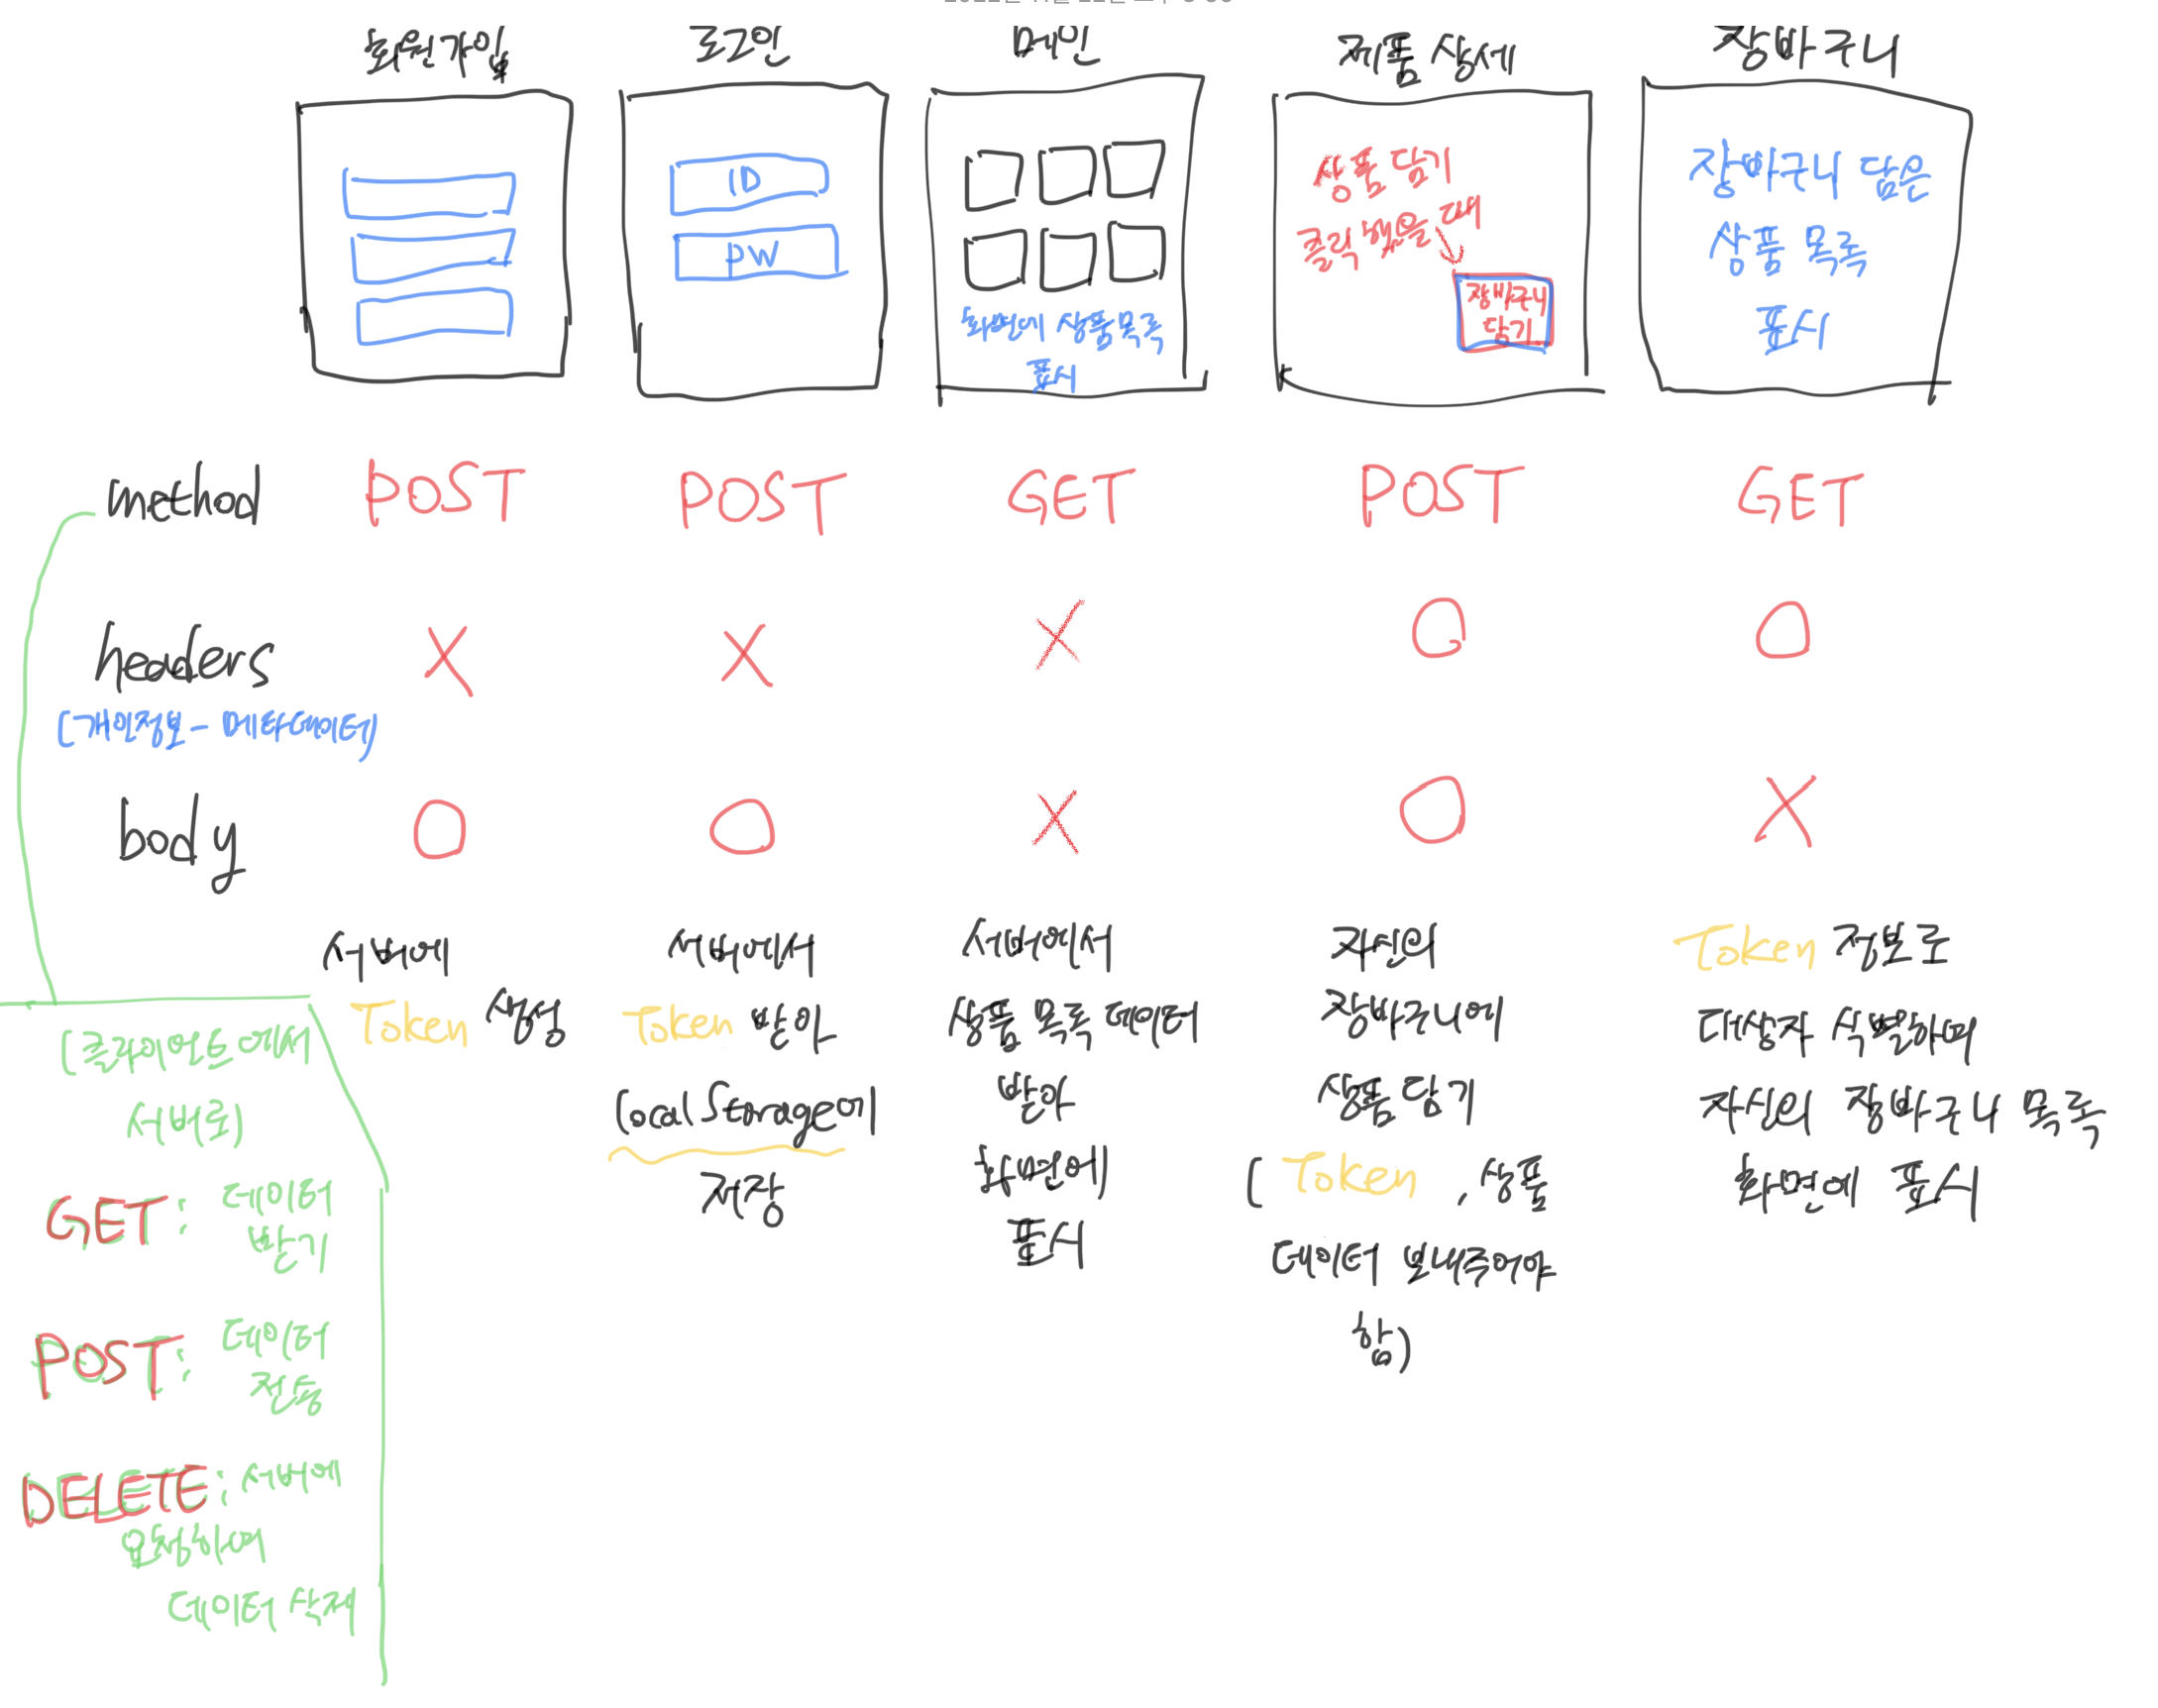 회원가입
로그인
메인
제품 상세
장바구니
ID
PW
화면에 상품목록
표시
상품 담기
클릭 했을 때
장바구니
담기
장바구니 담은
상품 목록
표시
method
POST
POST
GET
POST
GET
headers
X
X
X
O
O
(개인정보 - 메타데이터)
body
O
O
X
O
X
서버에
Token 생성
서버에서
Token 받아
Local Storage에
저장
서버에서
상품 목록 데이터
받아
화면에
표시
자신의
장바구니에
상품 담기
( Token , 상품
데이터 보내주어야
함)
Token 정보로
대상자 식별하며
자신의 장바구니 목록
화면에 표시
(클라이언트에서
서버로)
GET: 데이터
받기
POST: 데이터
전송
DELETE: 서버에
요청하여
데이터 삭제